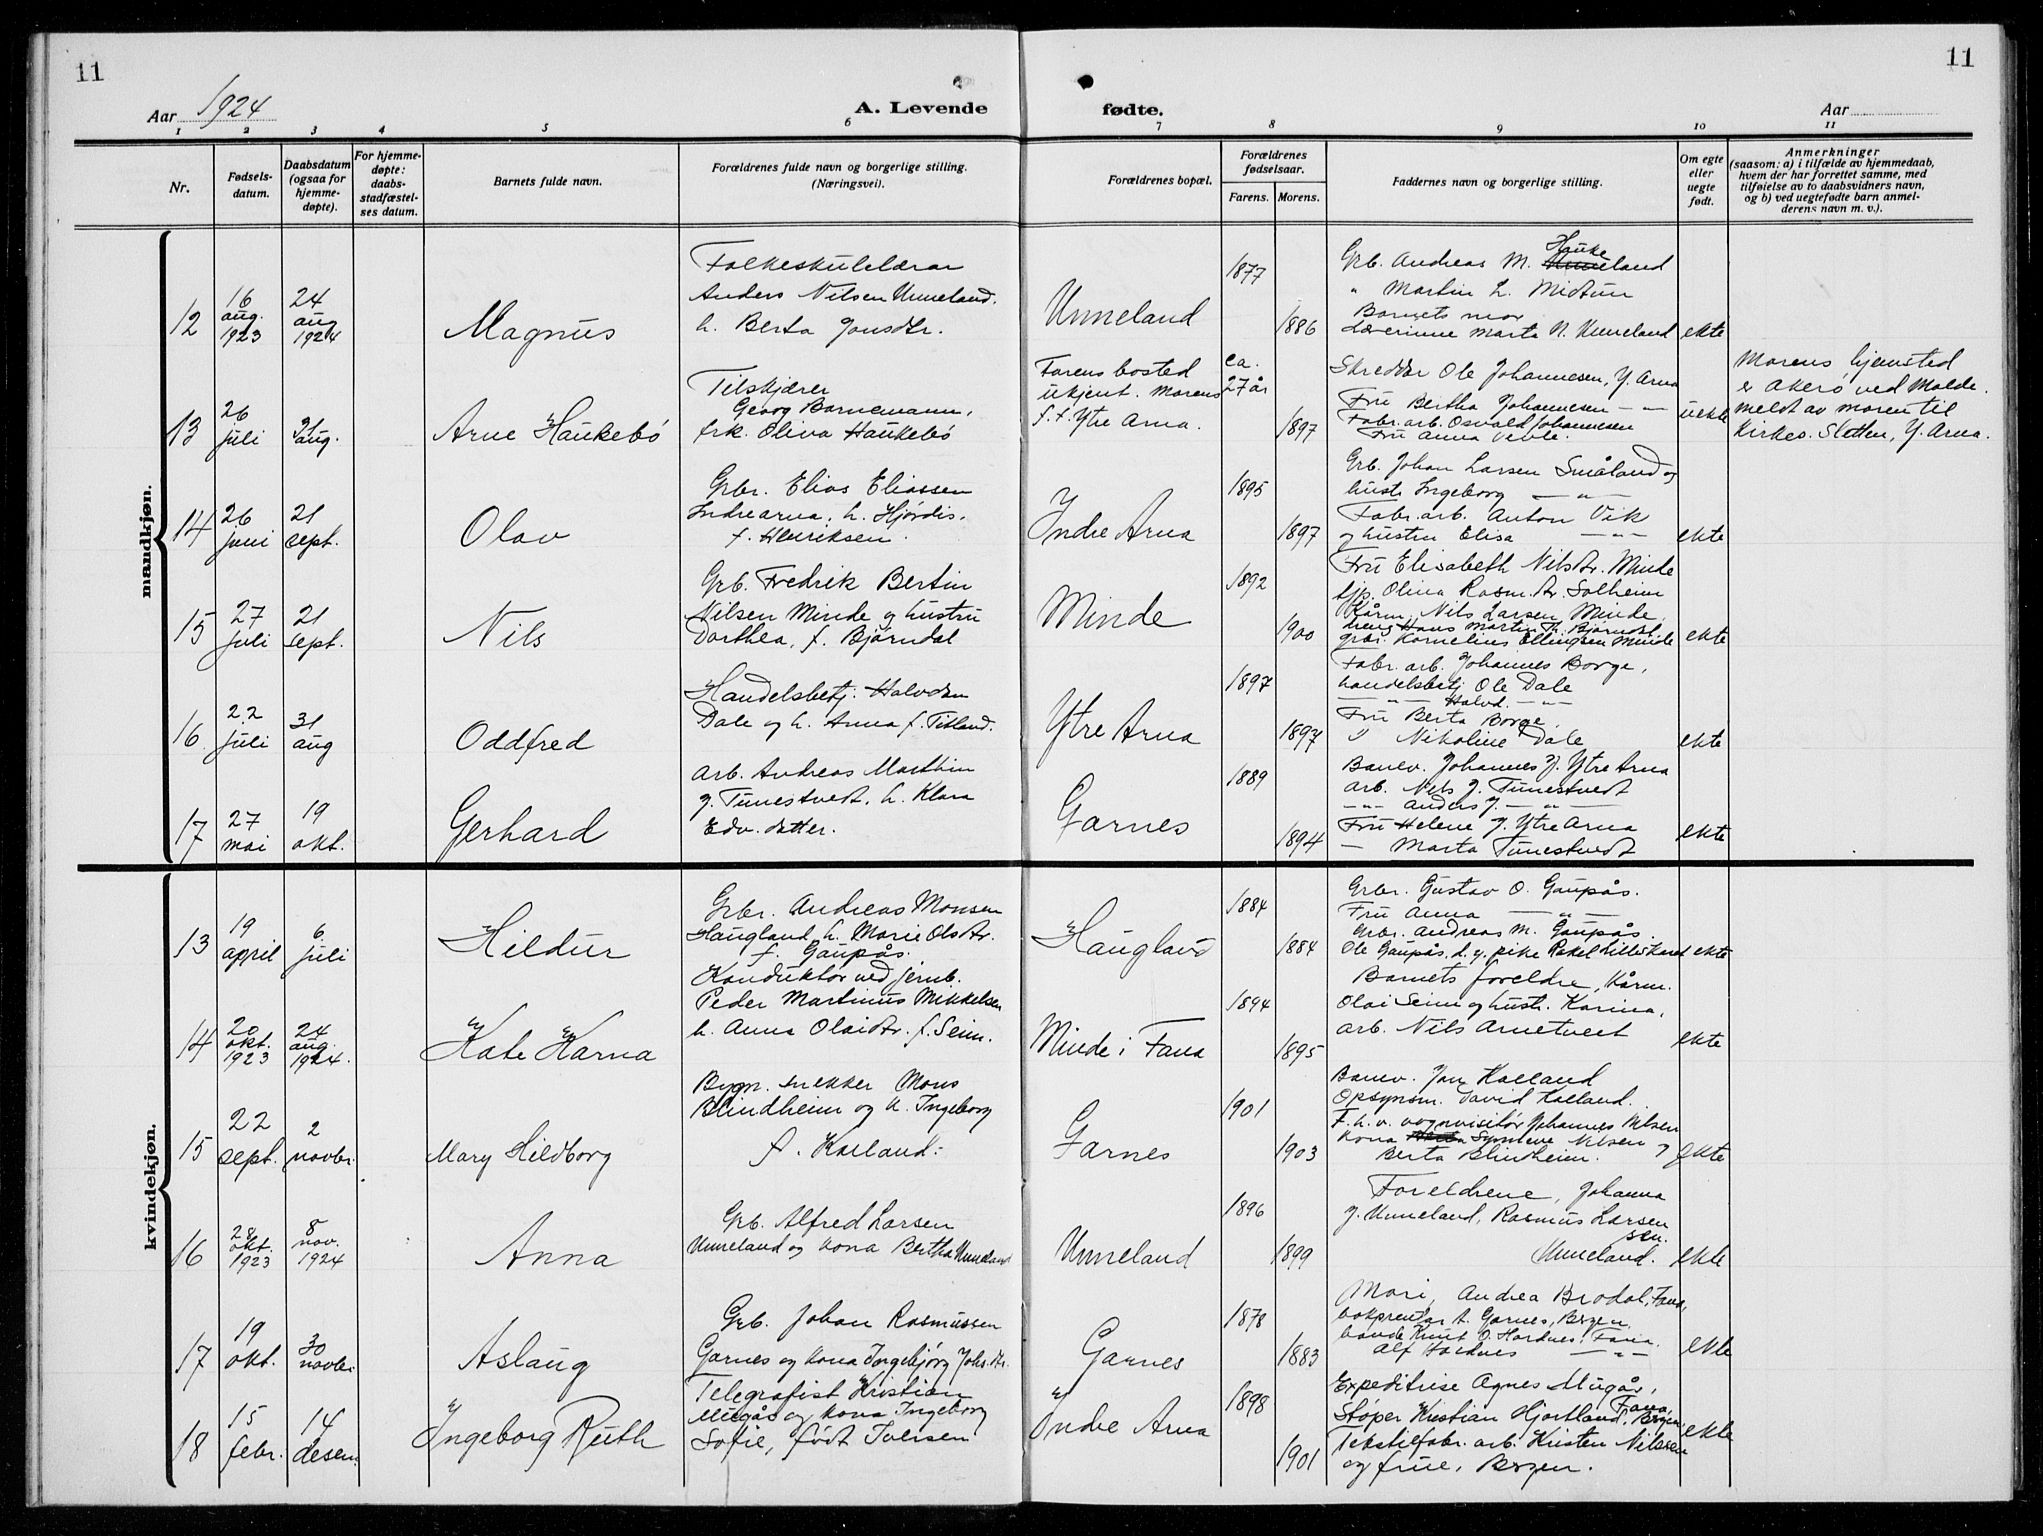 11
11
Aar 1924
A. Levende
fødte.
Aar
1 2 3 4 5 6 7 8 9 10 11
Nr.
Fødsels-
datum.
Daabsdatum
(ogsaa for
hjemme-
døpte).
For hjemme-
døpte:
daabs-
stadfæstel-
ses datum.
Barnets fulde navn.
Forældrenes fulde navn og borgerlige stilling.
(Næringsvei).
Forældrenes bopæl.
Forældrenes
fødselsaar.
Farens. Morens.
Faddernes navn og borgerlige stilling.
Om egte
eller
uegte
født.
Anmerkninger
(saasom: a) i tilfælde av hjemmedaab,
hvem der har forrettet samme, med
tilføielse av to daabsvidners navn,
og b) ved uegtefødte barn anmel-
derens navn m. v.).
mandkjøn.
12
16
aug.
1923
24
aug
1924
Magnus
Folkeskulelærar
Anders Nilsen Unneland.
h. Berta Jonsdtr.
Unneland
1877
1886
Grb. Andreas M. Haukeland
" Martin L. Midtun
Barnets mor
Lærerinne Marta N. Unneland
ekte
13
26
juli
31
aug.
Arne Haukebó
Tilskjærer
Georg Bornemann,
frk. Oliva Haukebó
Farens bosted
ukjent. Morens
f.t. Ytre Arna.
ca.
27 år
1897
Skredder Ole Johannesen, Y. Arna
Fru Bertha Johannesen — " —
Fabr. arb. Osvald Johannesen
Fru Anna
uekte
Morens hjemstad
er Akerø ved Molde.
meldt av moren til
Kirkes. Sletten, Y. Arna.
14
26
juni
21
sept.
Olav
Gbr. Elias Eliassen
Indre arna, h. Hjørdis,
f. Henriksen.
Indre Arna
1895
1897
Grb. Johan Larsen Småland og
hustr. Ingeborg — " —
Fabr. arb. Anton Vik
og hustru Elisa — " —
ekte
15
27
juli
21
sept.
Nils
Grb. Fredrik Bertin
Nilsen Minde og hustru
Dorthea, f. Bjørndal
Minde
1892
1900
Fru Elisabeth Nilsdtr. Minde
tjp. Olina Rasm. dtr. Solheim
Kårm. Nils Larsen Minde
dreng Hans Martin H. Bjørndal
gbr. Kornelius Ellingsen Minde
ekte
16
22
juli
31
aug
Oddfred
Handelsbetj. Halvdan
Dale og h. Anna f. Titland.
Ytre Arna
1897
1897
Fabr. arb. Johannes Borge,
handelsbetj Ole Dale
— " — Halvd. — " —
Fru Berta Borge.
" Nikoline Dale
ekte
17
27
mai
19
okt.
Gerhard
arb. Andreas Marthin
J. Tunestvedt. h. Klara
Edv. datter.
Garnes
1889
1894
Banev. Johannes J. Ytre Arna
arb. Nils J. Tunestvedt
— " — Anders J. — " —
Fru Helene J. Ytre Arna
— Marta Tunestvedt
ekte
kvindekjøn.
13
19
april
6
juli
Hildur
Gbr. Andreas Monsen
Haugland, h. Marie Olsdtr.
f. Gaupås.
Haugland
1884
1884
Gbr. Gustav O. Gaupås.
Fru Anna — " —
Gbr. Andreas M. Gaupås.
Ole Gaupås. d. y. pike Rakel Lilleskaret
ekte
14
20
okt.
1923
24
aug.
1924.
Kate Karna
Konduktør ved jernb.
Peder Martinus Mikkelsen
h. Anna Olaidtr. f. Seim.
Minde i Fana
1894
1895
Barnets foreldre, Kårm.
Olai Seim og hustr. Karina,
arb. Nils Arnetveit
ekte
15
22
sept.
2
novbr.
Mary Hildborg
Bygn. snekker Mons
Blindheim og h. Ingeborg
f. Kaland.
Garnes
1901
1903
Banev. Jon Kalland
Opsynsm. David Kalland.
F. h. v. vognvisitør Johannes Nilsen
kona Synneve Nilsen og
Berta Blindheim.
ekte
16
28
okt.
1923
8
nov.
1924
Anna
Grb. Alfred Larsen
Unneland og kona Bertha Unneland
Unneland
1896
1899
Foreldrene, Johanna
J. Unneland, Rasmus Larsen
sen.
Unneland.
ekte
17
19
okt.
30
novbr.
Aslaug
Grb. Johan Rasmussen
Garnes og kona Ingebjørg Johs. dtr.
Garnes
1878
1883
Mori, Andrea Brodal, Fana,
bokprentar A. Garnes, Bergen.
bonde Knut O. Hordnes, Fana.
Alf Hordnes — " —
ekte
18
15
febr.
14
desem.
Ingeborg Ruth
Telegrafist Kristian
Mugås og kona Ingeborg
Sofie, født Iversen
Indre Arna
1898
1901
Expeditrise Agnes Mugås,
Fana,
Støper Kristian Hjortland, Bergen,
Tekstilfabr. arb. Kristen Nilssen
og frue, Bergen.
ekte